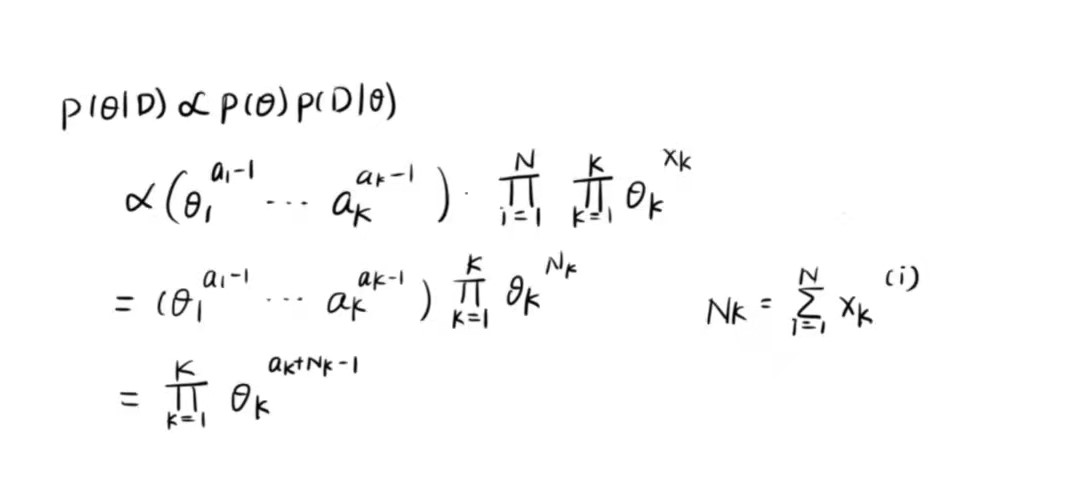 p(θ|D) ∝ p(θ)p(D|θ)
∝ (θ₁^{a₁-1} ··· a_k^{a_k-1}) · ∏_{i=1}^{N} ∏_{k=1}^{K} θ_k^{x_k}
= (θ₁^{a₁-1} ··· a_k^{a_k-1}) ∏_{k=1}^{K} θ_k^{N_k}
N_k = ∑_{i=1}^{N} x_k^{(i)}
= ∏_{k=1}^{K} θ_k^{a_k+N_k-1}